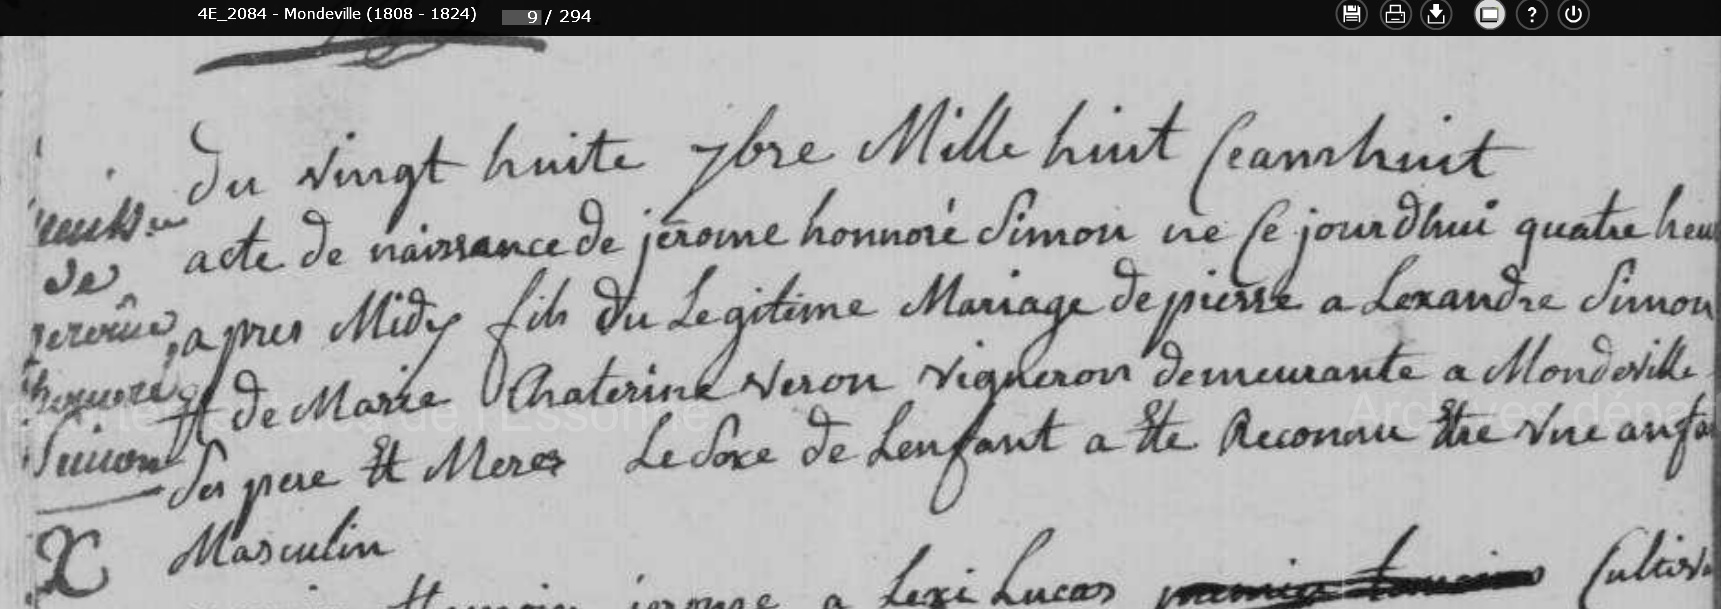 4E_2084 - Mondeville (1808 - 1824) 9 / 294
Du vingt huite 7bre Mille huit Ceanshuit
acte de naissance de jerome honnoré Simon ne Ce jourdhui quatre heu
apres Midy fils du Legitime Mariage de pierre a Lexandre Simon
Et de Marie Chaterine veron vigneron demeurante a Mondeville
Ses pere Et Meres Le Sexe de Lenfant a Ete Reconnu Etre vne anfan
Masculin
jerome a Lexi Lucas Cultiva
de
jerome
honnoré
Simon
Archives départementales de l'Essonne